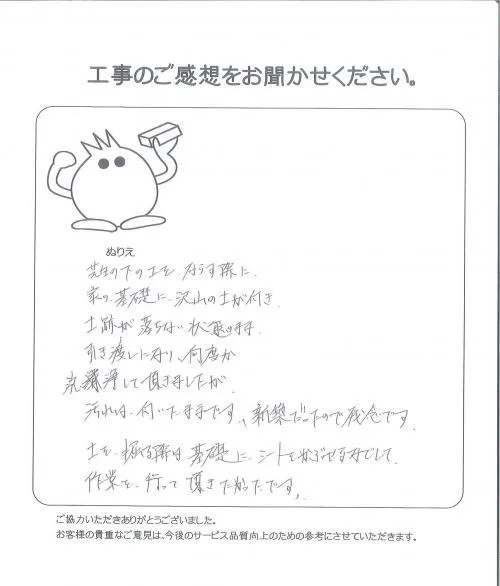 工事のご感想をお聞かせください。
ぬりえ
芝生の下の土を、ならす際に、
家の基礎に、沢山の土が付き、
土跡が落ちない状態のまま、
引き渡しになり、何度か
洗浄して頂きましたが、
汚れは、付いたままです。新築だったので残念です。
土を、掘る際は基礎に、シートをかぶせるなどして、
作業を、行って頂きたかったです。
ご協力いただきありがとうございました。
お客様の貴重なご意見は、今後のサービス品質向上のための参考にさせていただきます。